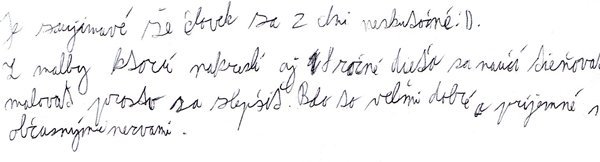 Je zaujímavé že človek za 2 dni neskutočné :D.
Z malby ktorú nakreslí aj ročné sa naučí tieňovať
malovať prosto sa zlepšiť. Bolo to veľmi dobré a príjemné s
občasnými nervami.